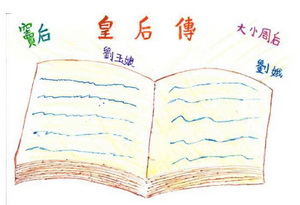 竇后
皇后傳
大小周后
劉玉娘
劉娥